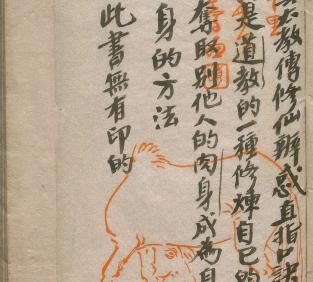 教傳修仙辨惑直指口訣
是道教的一種修煉自已的
奪別他人的肉身成為自
身的方法
此書無有印的